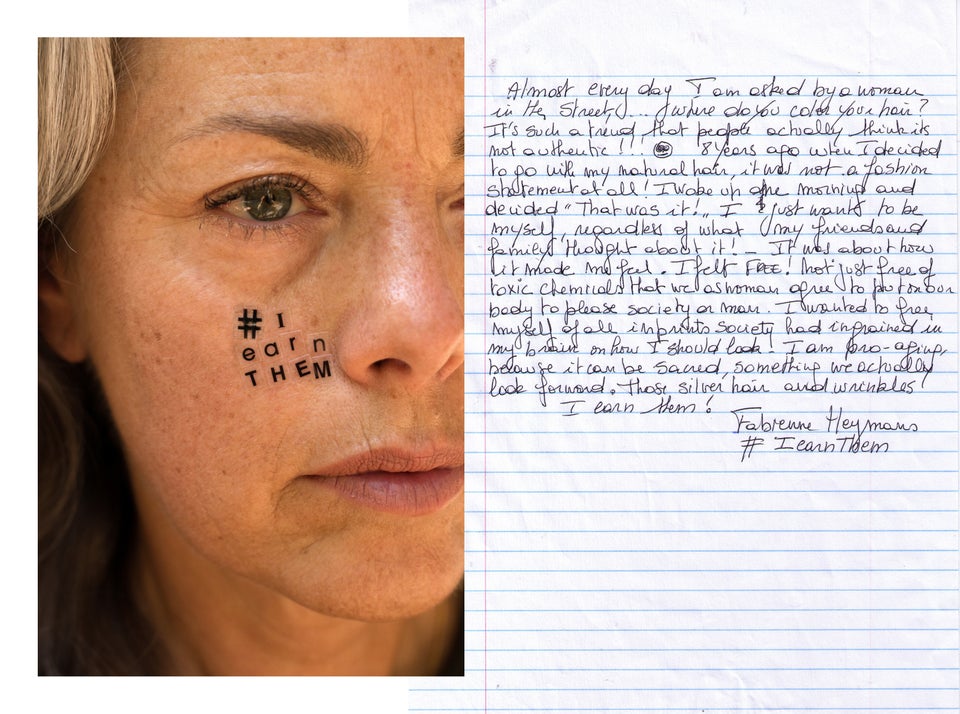 # I
earn
THEM
Almost every day I am asked by a woman
in the street,... where do you color your hair?
It's such a trend that people actually think its
not authentic!!! 8 years ago when I decided
to go with my natural hair, it was not a fashion
statement at all! I woke up one morning and
decided "That was it!" I just wants to be
myself, regardless of what my friends and
family thought about it! - It was about how
it made me feel. I felt FREE! Not just free of
toxic chemicals that we as woman agree to put on our
body to please society or man. I wanted to free
myself of all imprints society had ingrained in
my brain on how I should look! I am pro-aging,
because it can be sacred, something we actually
look forward. Those silver hair and wrinkles!
I earn them!
Fabienne Heymans
# IearnThem